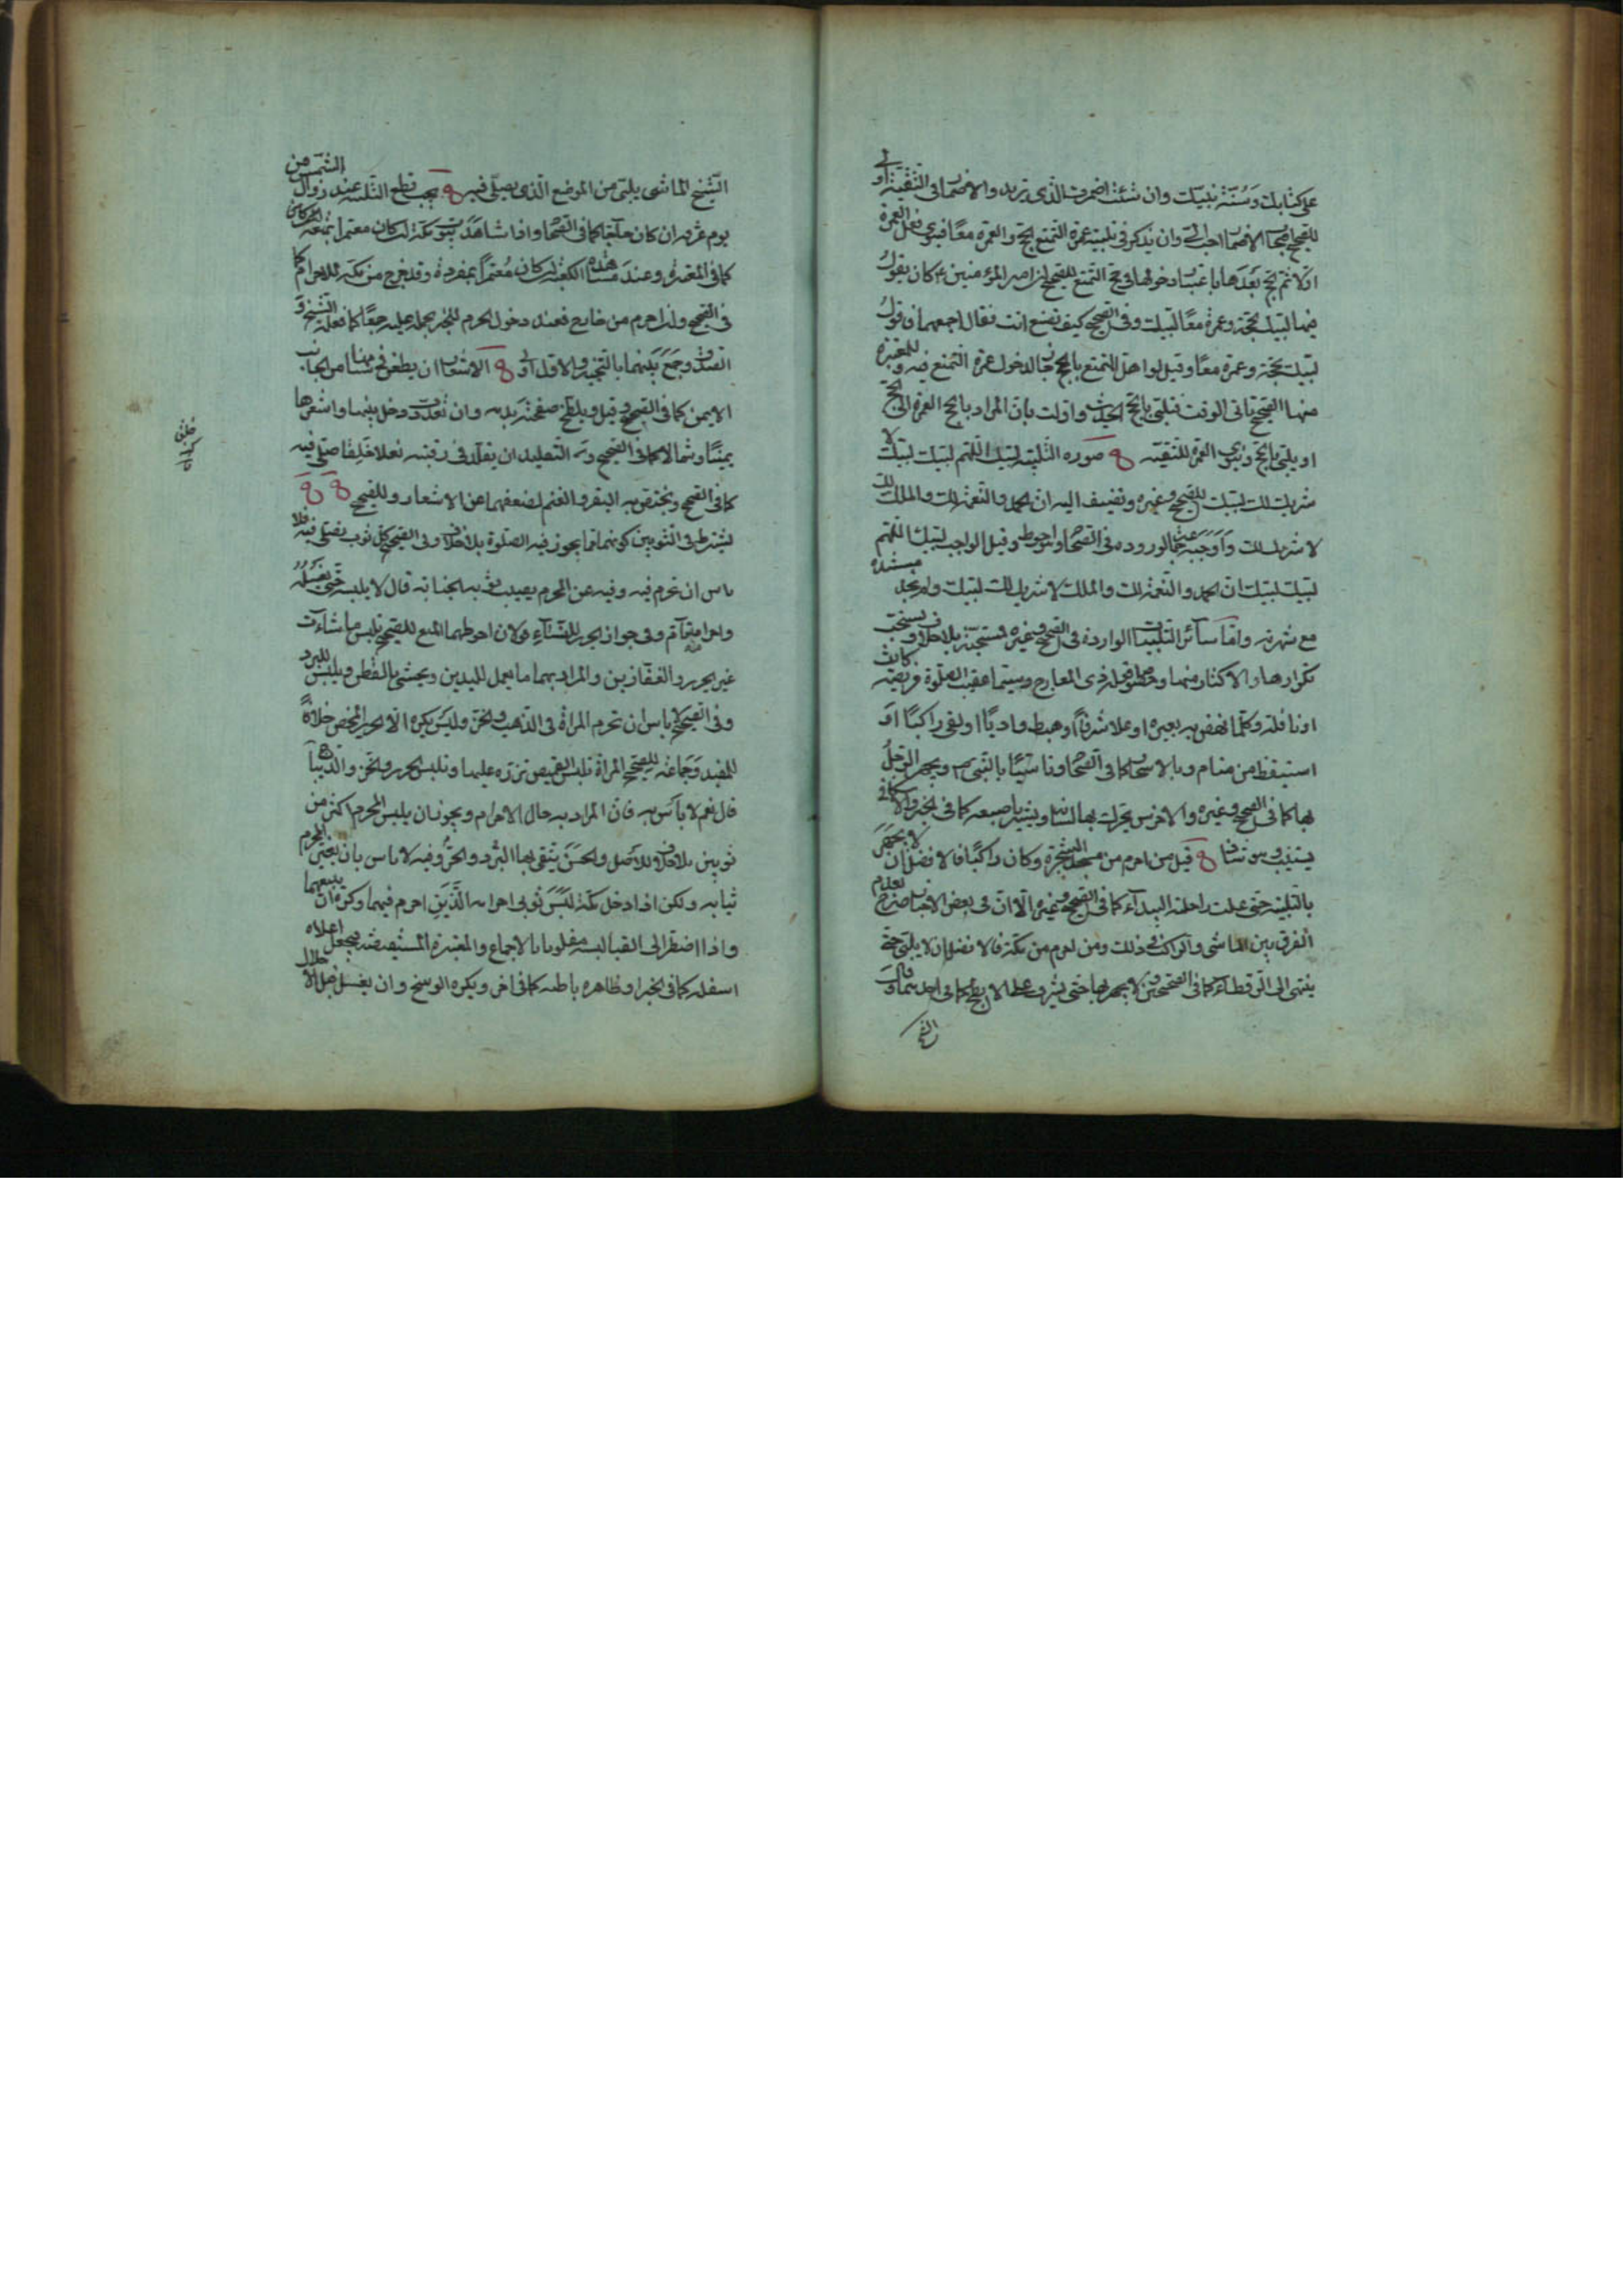 على كتابك وسنة نبيك وان شئت اضمرت الذي تريد والاضمار في التقية اولى
للصحيح اصحاب الاضمار احب الي وان يذكر في تلبية عمرة التمتع الحج والعمرة معا فينوي فعل العمرة
اولا ثم الحج بعدها باعتبار دخولها في حج التمتع للصحيح ان امير المؤمنين ع كان يقول
فيها لبيك بحجة وعمرة معا لبيك وفي الصحيح كيف تصنع انت فقال اجمعهما فاقول
لبيك بحجة وعمرة معا وقيل لو اهل المتمتع بالحج جاز لدخول عمرة التمتع فيه وللمعتبرة
منها الصحيح تاتي الوقت فتلبي بالحج الحديث واولت بان المراد بالحج العمرة الى الحج
او يلبي بالحج وينوي العمرة للتقية صورة التلبية لبيك اللهم لبيك لبيك لا
شريك لك لبيك للصحيح وغيره وتضيف اليه ان الحمد والنعمة لك والملك لك
لا شريك لك واوجبه جماعة لوروده في الصحاح وهو احوط وقيل الواجب لبيك اللهم
لبيك لبيك ان الحمد والنعمة لك والملك لا شريك لك لبيك ولم نجد مستنده
مع شهرته واما سائر التلبيات الواردة في الصحيح وغيره فمستحبة بلا خلاف ويستحب
تكرارها والاكثار منها وخصوصا قوله ذي المعارج وسيما عقيب الصلوة فريضة كانت
او نافلة وكلما نهض به بعيره او علا شرفا او هبط واديا او لقي راكبا او
استيقظ من منام وبالاسحار كما في الصحاح وتاسيا بالنبي ص ويجهر الرجل
بها كما في الصحيح وغيره والاخرس يحرك بها لسانه ويشير باصبعه كما في الخبر والاسكافي
يستنيب وهو شاذ قيل من احرم من مسجد الشجرة وكان راكبا فالافضل ان لا يجهر
بالتلبية حتى علت راحلته البيداء كما في الصحيح وغيره الا ان في بعض الاخبار صرح بعدم
الفرق بين الماشي والراكب في ذلك ومن احرم من مكة فالافضل ان لا يلبي حتى
ينتهي الى الرقطاء كما في الصحيحين ولا يجهر بها حتى يشرف على الابطح كما في احدهما وقال
الشيخ
الشيخ الماشي يلبي من الموضع الذي يصلي فيه يجب قطع التلبية عند زوال الشمس من
يوم عرفة ان كان حاجا كما في الصحاح واذا شاهد بيوت مكة ان كان معتمرا بمتعة
كما في المعتبرة وعند مشاهدة الكعبة ان كان معتمرا بمفردة وقد خرج من مكة للاحرام كما
في الصحيح وان احرم من خارج فعند دخول الحرم للخبر بحمله عليه جمعا كما فعله الشيخ و
الصدوق وجمع بينهما بالتخيير والاول اولى الاشعار ان يطعن في سنامها من الجانب
الايمن كما في الصحيح وقيل ويلطخ صفحته بدمه وان تعددت دخل بينها واشعرها
يمينا وشمالا كما في الصحيح والتقليد ان يقلد في رقبته نعلا خلقا صلى فيه
كما في الصحيح ويختص به البقر والغنم لضعفهما عن الاشعار وللصحيح
يشترط في الثوبين كونهما مما يجوز فيه الصلوة بلا خلاف وفي الصحيح كل ثوب يصلى فيه فلا
باس ان تحرم فيه وفيه عن المحرم يصيب ثوبه الجنابة قال لا يلبسه حتى يغسله
واحرامه تام وفي جواز الحرير للنساء قولان احوطهما المنع للصحيح تلبس ما شاءت
غير الحرير والقفازين والمراد بهما ما يعمل لليدين ويحشى بالقطن ويلبس للبرد
وفي الصحيح لا باس ان تحرم المراة في الذهب والخز وليس يكره الا الحرير المحض خلافا
للمفيد وجماعة للصحيح المراة تلبس القميص تزره عليها وتلبس الحرير والخز والديباج
قال نعم لا باس به فان المراد به حال الاحرام ويجوز ان يلبس المحرم اكثر من
ثوبين بلا خلاف وللاصل والحسن يتقي بها البرد والحر وفيه لا باس بان يغير المحرم
ثيابه ولكن اذا دخل مكة لبس ثوبي احرامه الذين احرم فيهما وكره ان يبيعهما
واذا اضطر الى القبا لبسه مقلوبا بالاجماع والمعتبرة المستفيضة يجعل اعلاه
اسفله كما في الخبر او ظاهره باطنه كما في اخر ويكره الوسخ وان يغسل قبل الاحلال